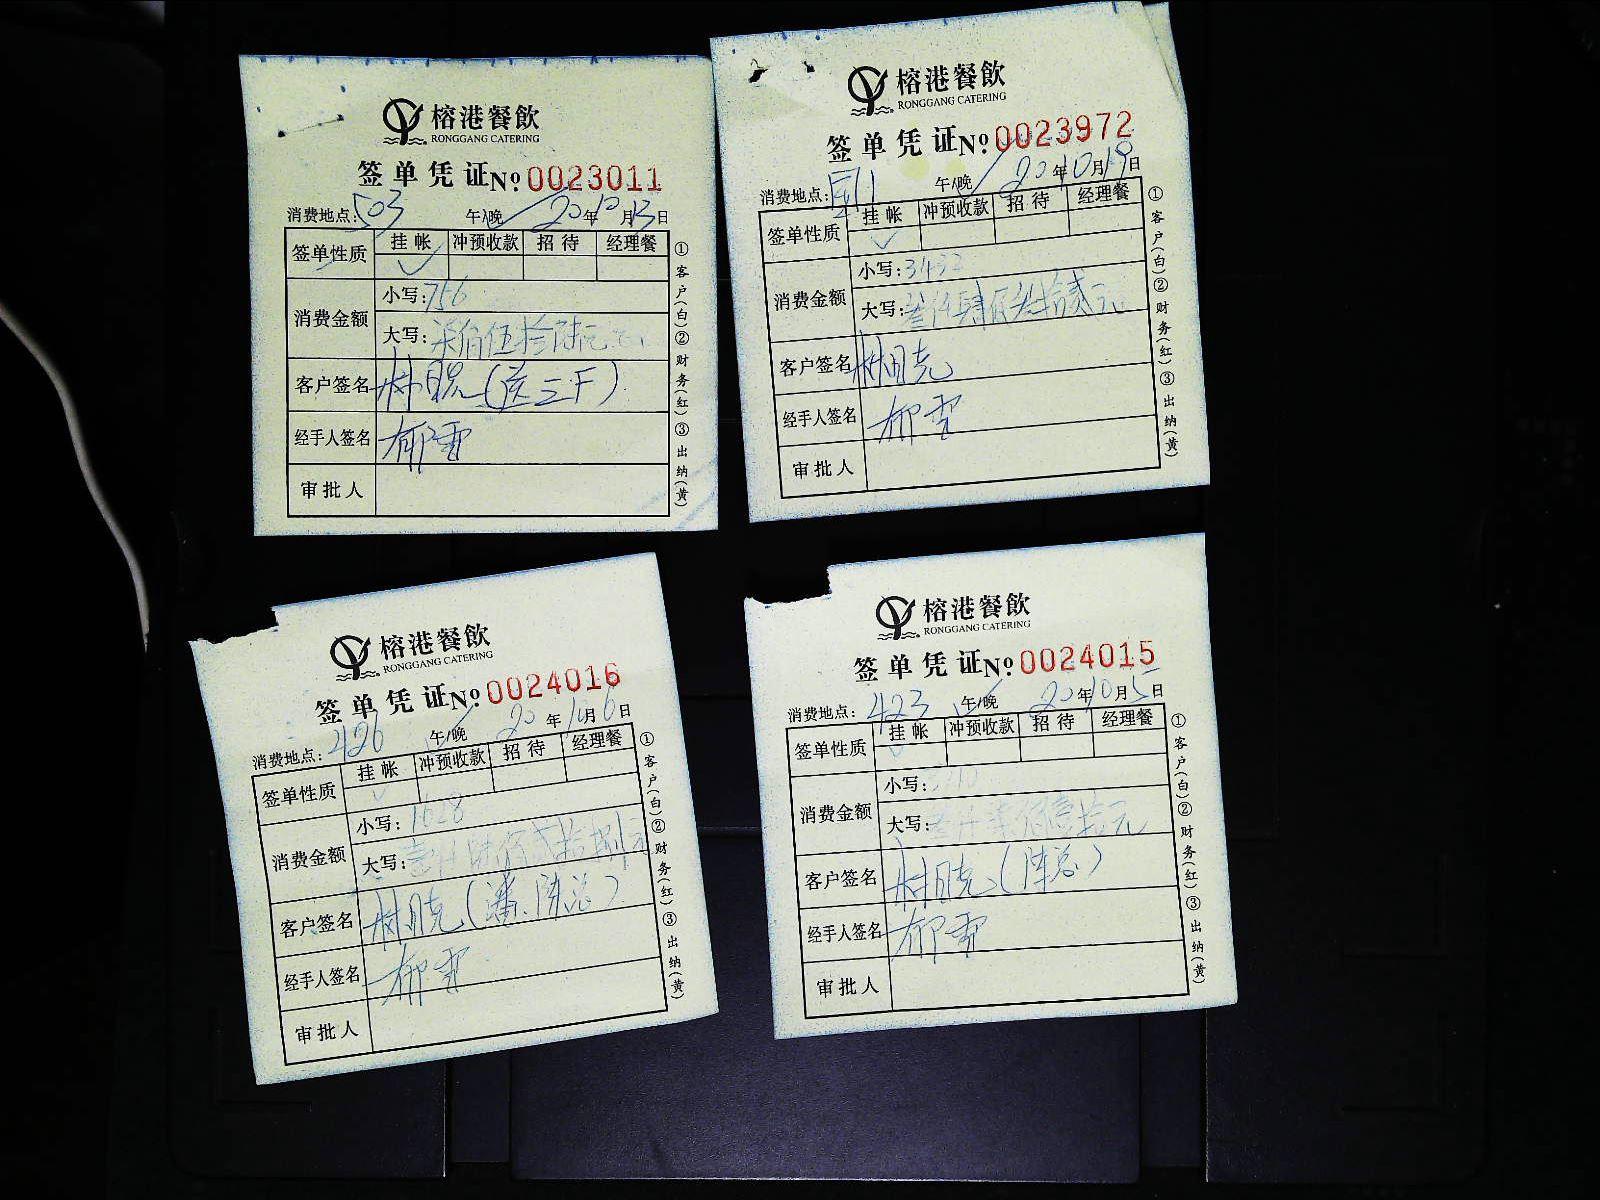 榕港餐飲
RONGGANG CATERING
签单凭证 No 0023011
消费地点: 503 午/晚 20年10月13日
签单性质 挂帐 冲预收款 招待 经理餐
消费金额 小写: 756
大写: 柒佰伍拾陆元
客户签名
经手人签名 郁雪
审批人
①客户(白)②财务(红)③出纳(黄)
榕港餐飲
RONGGANG CATERING
签单凭证 No 0023972
消费地点: 午/晚 20年10月19日
签单性质 挂帐 冲预收款 招待 经理餐
消费金额 小写: 3432
大写: 叁仟肆佰叁拾贰元
客户签名
经手人签名 郁雪
审批人
①客户(白)②财务(红)③出纳(黄)
榕港餐飲
RONGGANG CATERING
签单凭证 No 0024016
消费地点: 426 午/晚 20年10月6日
签单性质 挂帐 冲预收款 招待 经理餐
消费金额 小写: 1628
大写: 壹仟陆佰贰拾捌元
客户签名 (潘、陈总)
经手人签名 郁雪
审批人
①客户(白)②财务(红)③出纳(黄)
榕港餐飲
RONGGANG CATERING
签单凭证 No 0024015
消费地点: 423 午/晚 20年10月5日
签单性质 挂帐 冲预收款 招待 经理餐
消费金额 小写:
大写: 柒佰壹拾元
客户签名 (陈总)
经手人签名 郁雪
审批人
①客户(白)②财务(红)③出纳(黄)